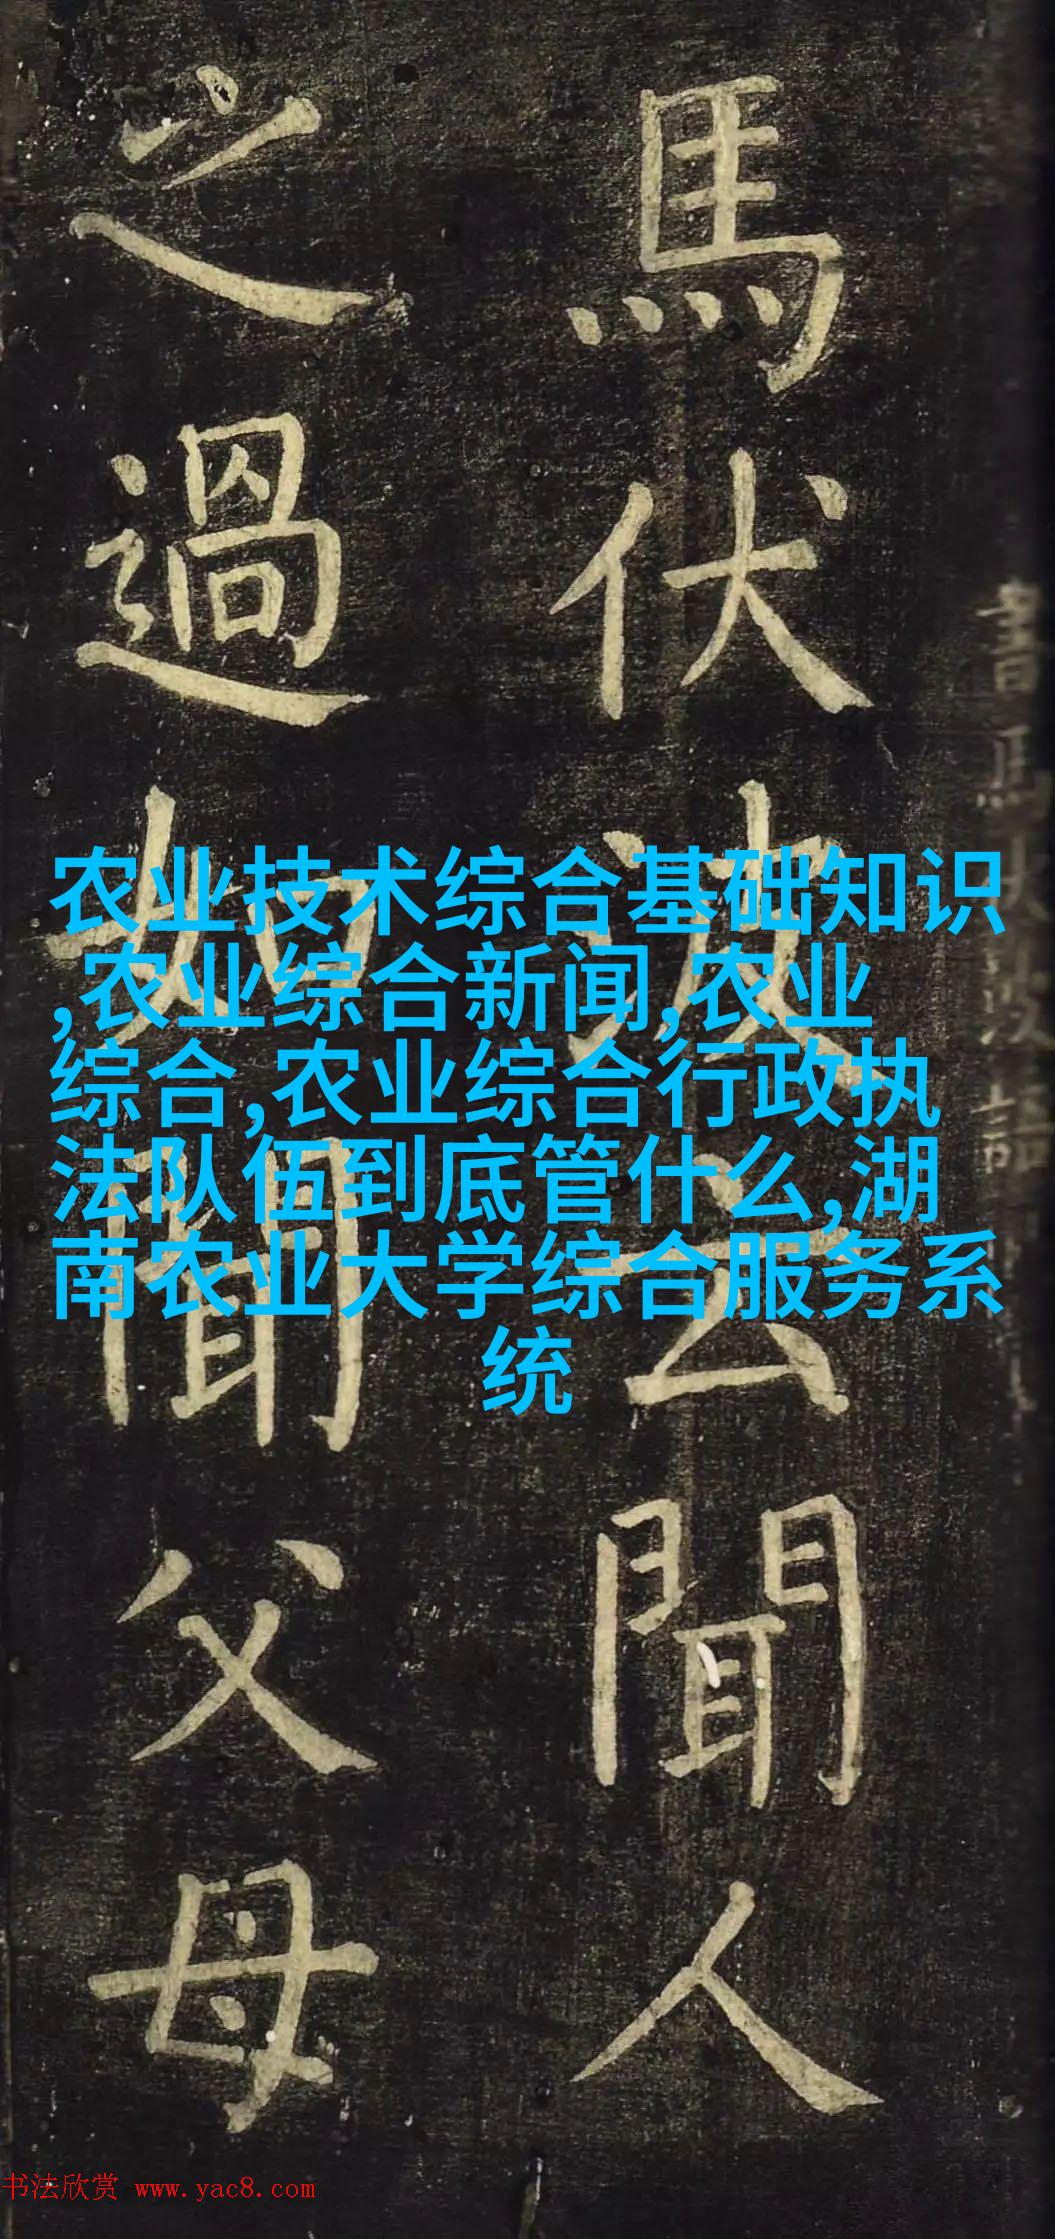 馬伏波云聞人
之過如聞父母
農业技术综合基础知识
,农业综合新闻,农业
综合,农业综合行政执
法队伍到底管什么,湖
南农业大学综合服务系
统
书法欣赏 www.yac8.com